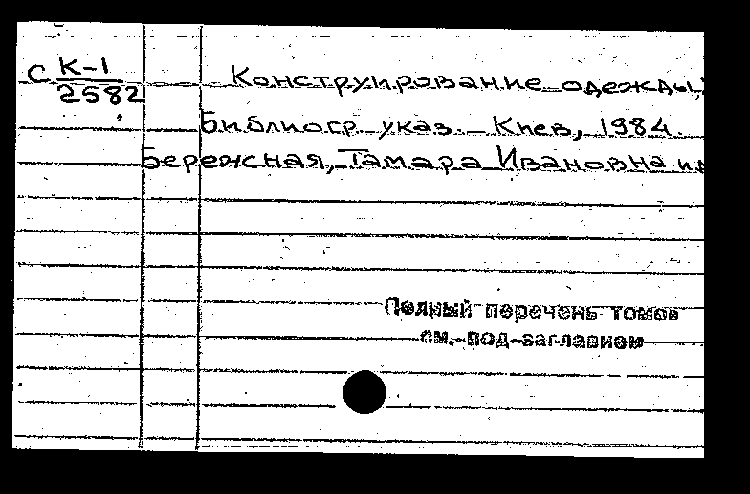 С К-1
2582
Конструирование одежды,
Библиогр. указ. Киев, 1984.
Бережная, Тамара Ивановна и
Полный перечень томов
см. под заглавием